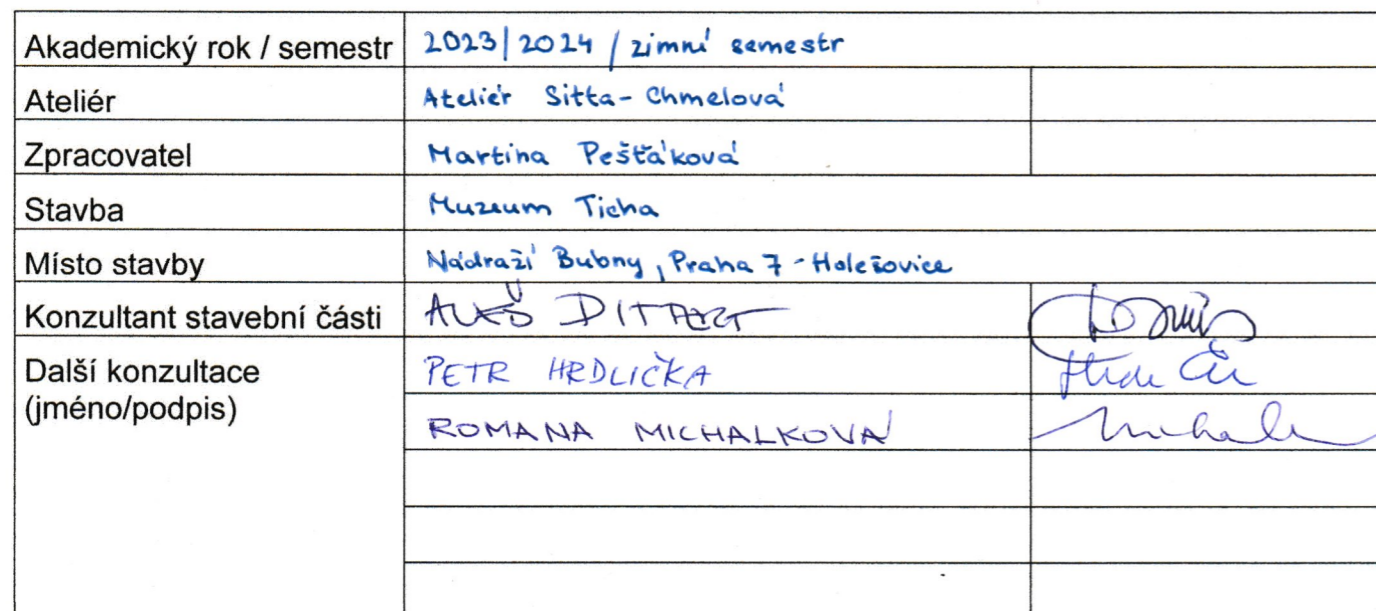 Akademický rok / semestr 2023/2024 / zimní semestr
Ateliér Ateliér Sitta-Chmelová
Zpracovatel Martina Pešťáková
Stavba Muzeum Ticha
Místo stavby Nádraží Bubny, Praha 7 - Holešovice
Konzultant stavební části ALEŠ DITTERT
Další konzultace PETR HRDLIČKA
(jméno/podpis)
ROMANA MICHALKOVÁ